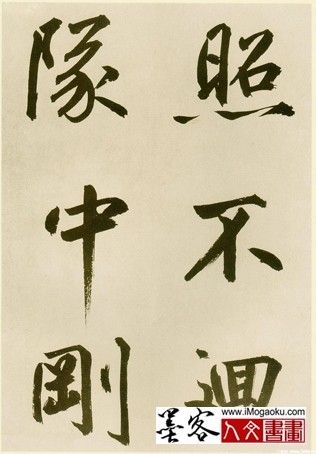 照不迴
隊中剛
墨客
www.iMogaoku.com
人文書畫